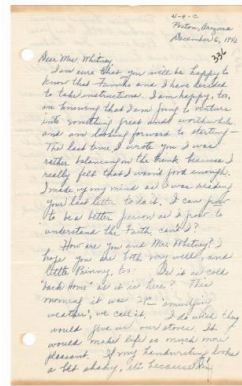 4-9-C
Poston, Arizona
December 6, 1942
336
Dear Mrs. Whitney,
I am sure that you will be happy to
know that and I have decided
to take instructions. I am happy, too,
in knowing that I am going to venture
into something great and worthwhile
and am looking forward to starting—
The last time I wrote you I was
rather balancing on the plank because I
really felt that I wasn't good enough.
I made up my mind as I was reading
your last letter to do it. I can grow
to be a better person as I grow to
understand the Faith, can't I?
How are you and Mr. Whitney? I
hope you are both very well, and
little Penny, too. Is it as cold
"back home" as it is here? This
morning it was 28°. "
weather", we call it. I do wish they
would give us our stoves. It
would make life so much more
pleasant. If my handwriting looks
a bit shaky, it's because I'm